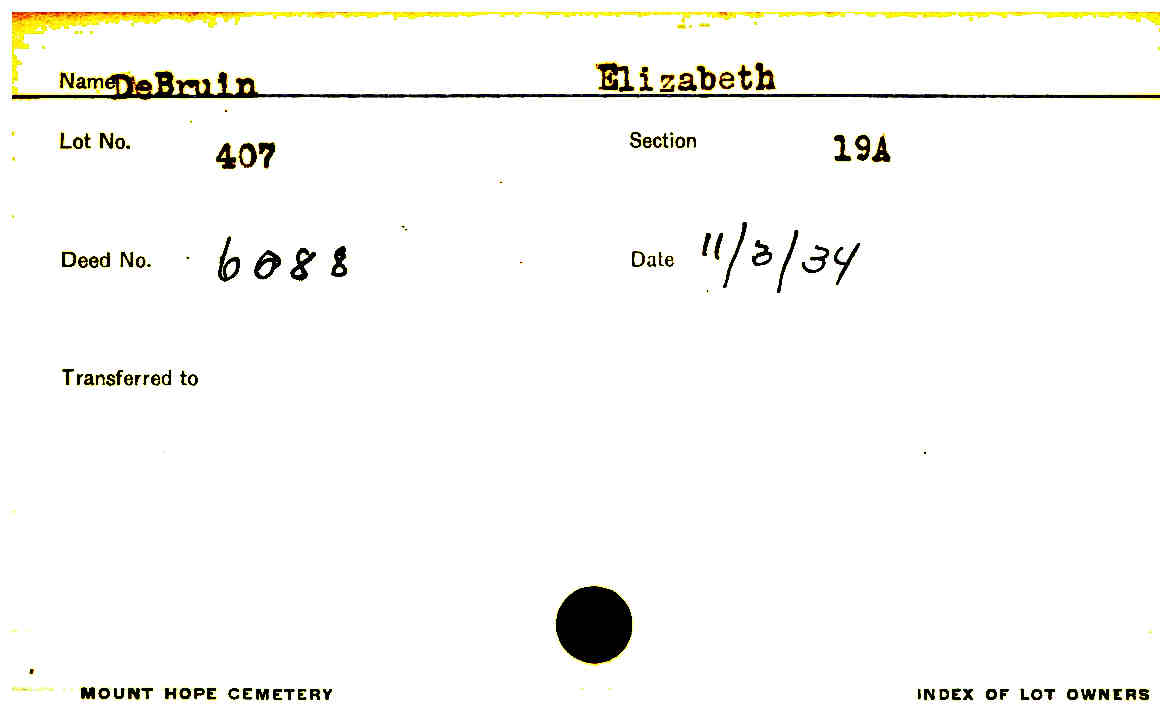 Name DeBruin Elizabeth
Lot No. 407 Section 19A
Deed No. 6088 Date 11/3/34
Transferred to
MOUNT HOPE CEMETERY INDEX OF LOT OWNERS